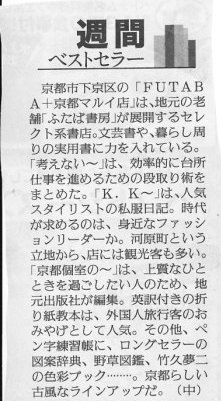 週間
ベストセラー
京都市下京区の「FUTAB
A+京都マルイ店」は、地元の老
舗「ふたば書房」が展開するセレ
クト系書店。文芸書や、暮らし周
りの実用書に力を入れている。
「考えない〜」は、効率的に台所
仕事を進めるための段取り術を
まとめた。「K.K〜」は、人気
スタイリストの私服日記。時代
が求めるのは、身近なファッシ
ョンリーダーか。河原町という
立地から、店には観光客も多い。
「京都個室の〜」は、上質なひと
ときを過ごしたい人のため、地
元出版社が編集。英訳付きの折
り紙教本は、外国人旅行客のお
みやげとして人気。その他、ペ
ン字練習帳に、ロングセラーの
図案辞典、野草図鑑、竹久夢二
の色彩ブック………。京都らしい
古風なラインアップだ。(中)